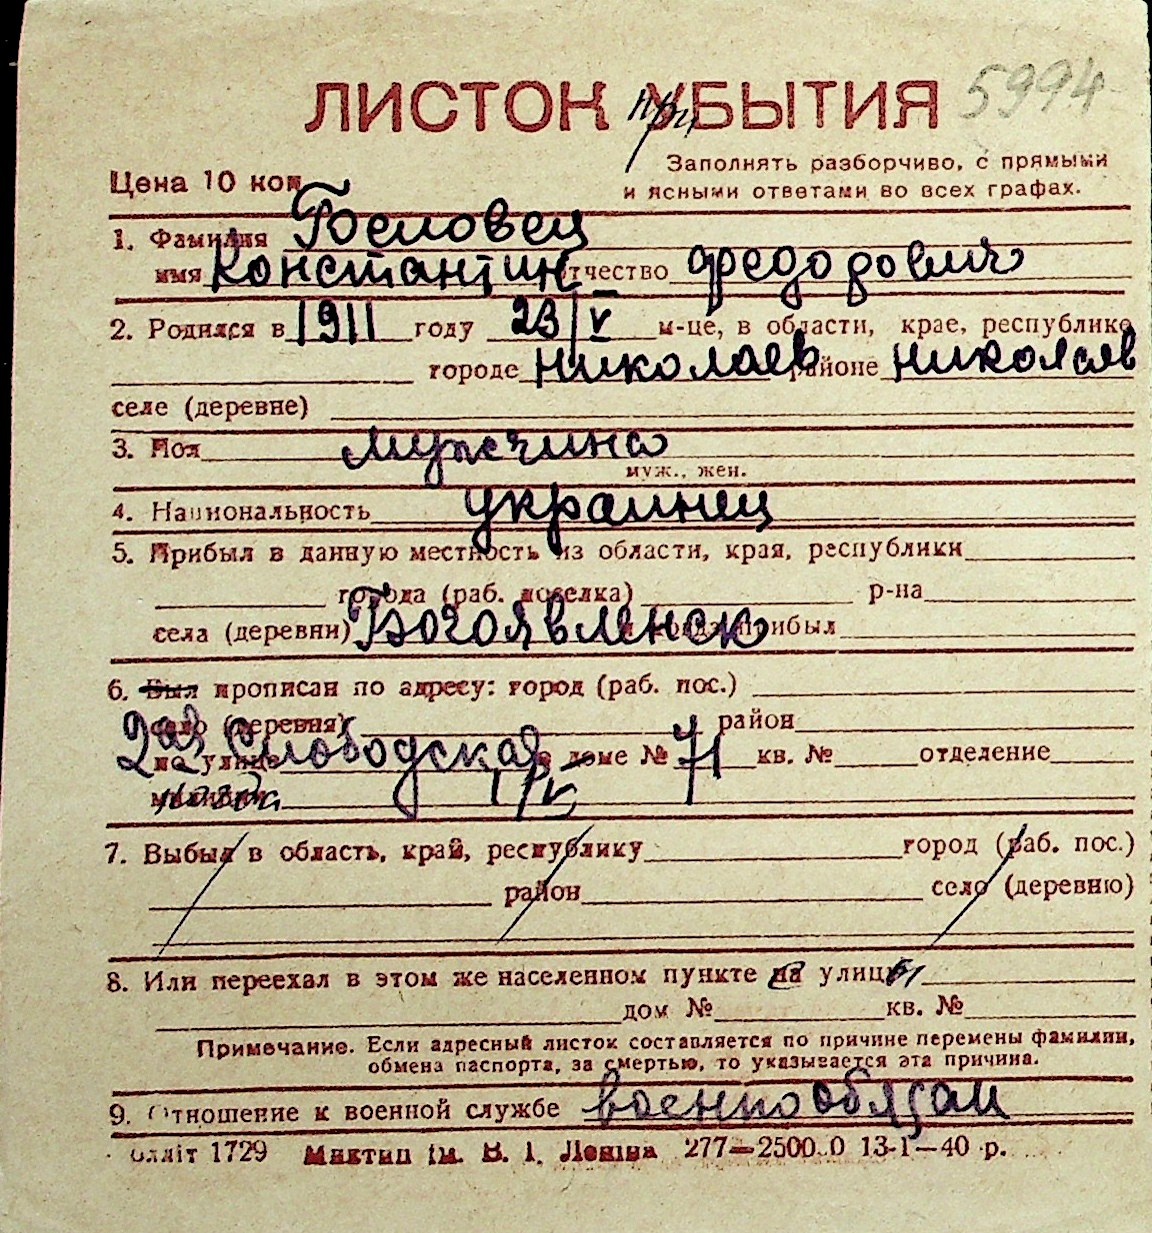 ЛИСТОК УБЫТИЯ 5994
при
Цена 10 коп
Заполнять разборчиво, с прямыми
и ясными ответами во всех графах.
1. Фамилия Гословец
имя Константин отчество Федорович
2. Родился в 1911 году 23/V м-це, в области, крае, республике
городе Николаев районе Николаев
селе (деревне)
3. Пол мужчина
муж., жен.
4. Национальность украинец
5. Прибыл в данную местность из области, края, республики
города (раб. поселка) р-на
села (деревни) Богоявленск и когда прибыл
6. Был прописан по адресу: город (раб. пос.)
село (деревня) район
по улице 2ая Слободская в доме № 71 кв. № отделение
милиции
7. Выбыл в область, край, республику город (раб. пос.)
район село (деревню)
8. Или переехал в этом же населенном пункте на улицу
дом № кв. №
Примечание. Если адресный листок составляется по причине перемены фамилии,
обмена паспорта, за смертью, то указывается эта причина.
9. Отношение к военной службе военнообязан
1729 Миктип ім. В. І. Леніна 277—2500.0 13-1—40 р.